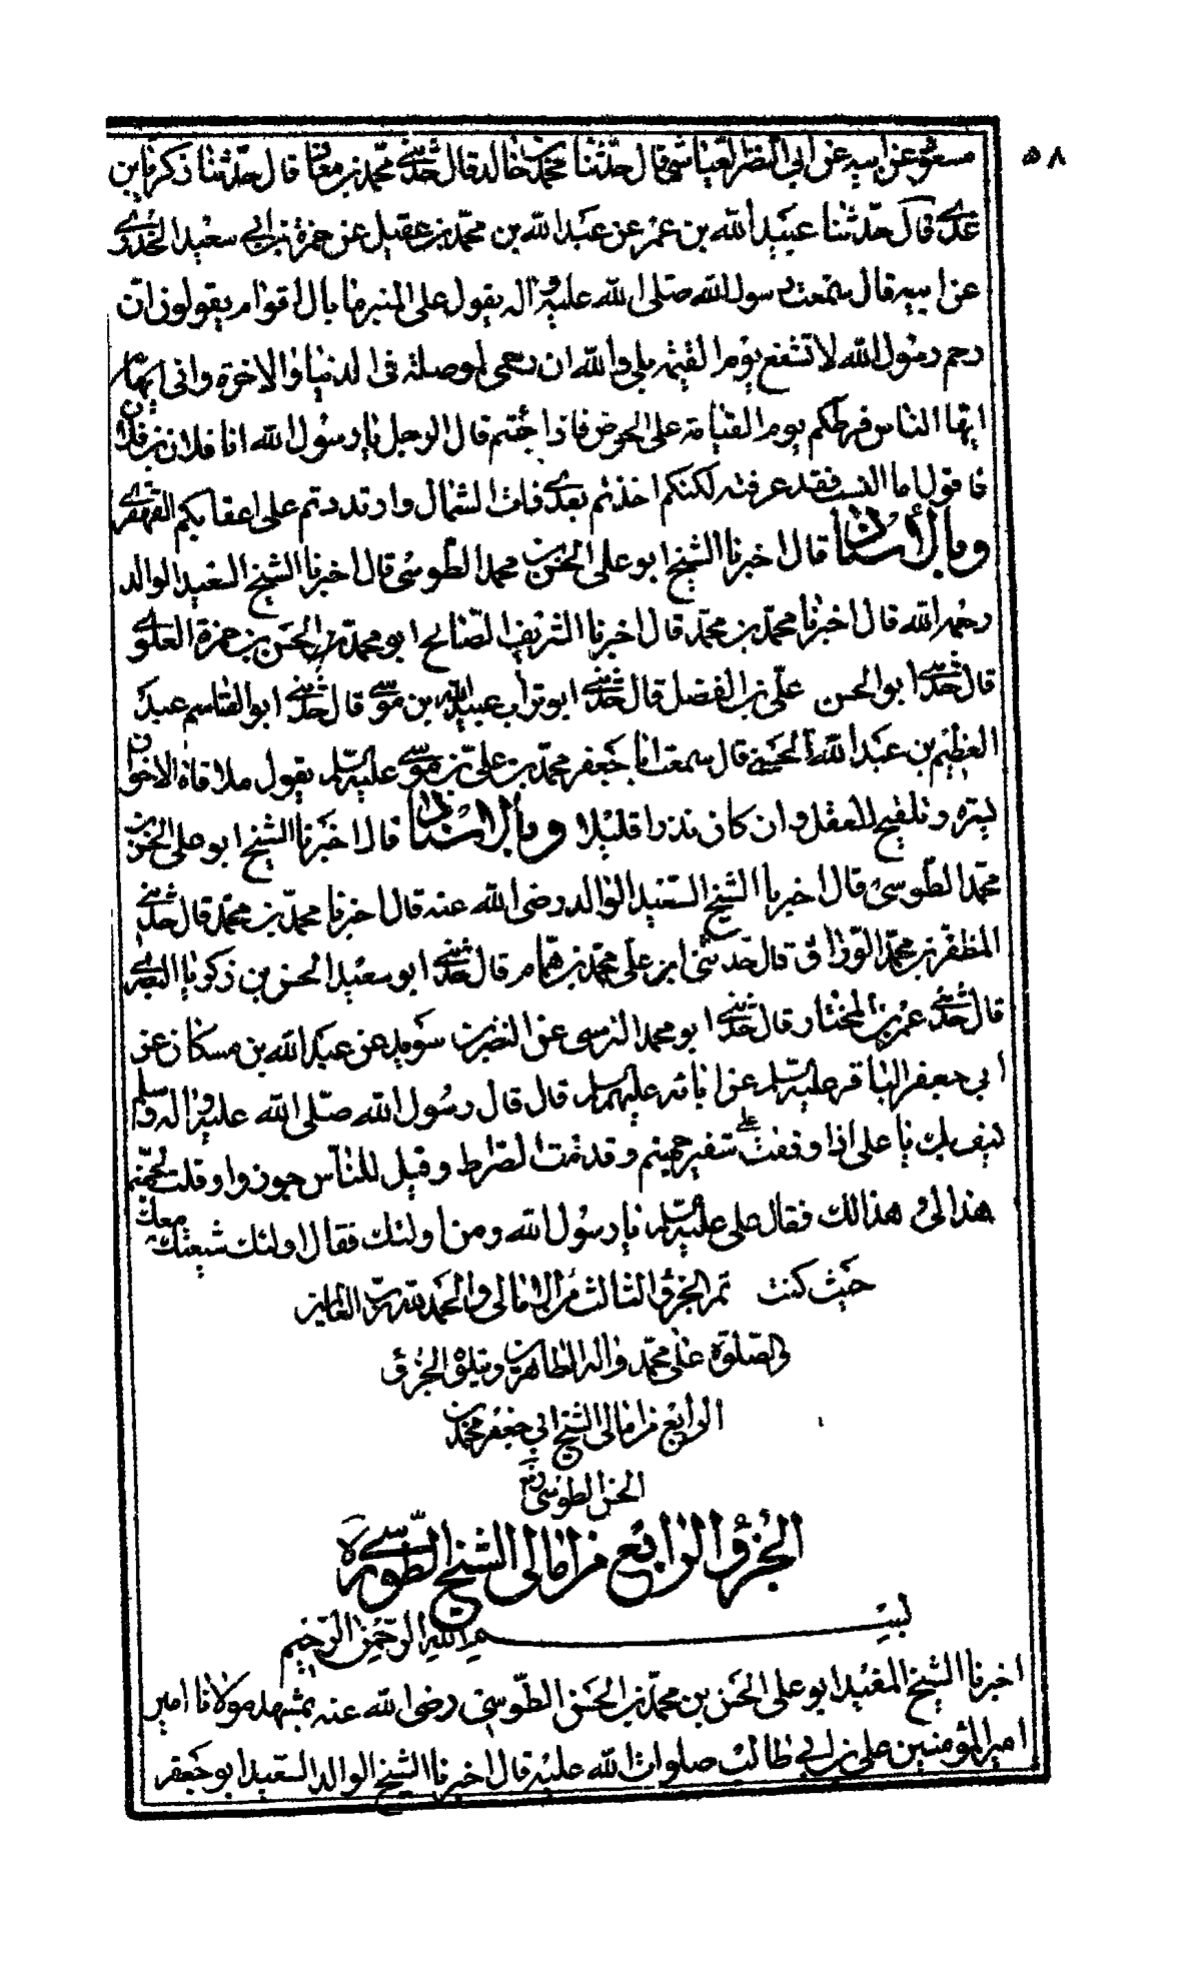 ٥٨
مسعود عن ابيه عن ابي النضر العياشي قال حدثنا محمد بن خالد قال حدثني محمد بن معاذ قال حدثنا زكريا بن
عدي قال حدثنا عبيد الله بن عمر عن عبد الله بن محمد بن عقيل عن حمزة بن ابي سعيد الخدري
عن ابيه قال سمعت رسول الله صلى الله عليه وآله يقول على المنبر ما بال اقوام يقولون ان
رحم رسول الله لا تشفع يوم القيمة بلى والله ان رحمي لموصلة في الدنيا والاخرة واني ايها
ايها الناس فرطكم يوم القيامة على الحوض فاذا جئتم قال الرجل يا رسول الله انا فلان بن فلان
فاقول اما النسب فقد عرفته لكنكم اخذتم بعدي ذات الشمال وارتددتم على اعقابكم القهقرى
وبالأسناد قال اخبرنا الشيخ ابو على الحسن بن محمد الطوسي قال اخبرنا الشيخ السعيد الوالد
رحمه الله قال اخبرنا محمد بن محمد قال اخبرنا الشريف الصالح ابو محمد بن الحسن بن حمزة العلوي
قال حدثني ابو الحسن علي بن الفضل قال حدثني ابو تراب عبيد الله بن موسى قال حدثني ابو القاسم عبد
العظيم بن عبد الله الحسيني قال سمعت ابا جعفر محمد بن علي بن موسى عليه السلم يقول ملاقاة الاخوان
نشرة وتلقيح للعقل وان كان نذرا قليلا وبالاسناد قال اخبرنا الشيخ ابو على الحسن بن
محمد الطوسي قال اخبرنا الشيخ السعيد الوالد رضى الله عنه قال اخبرنا محمد بن محمد قال حدثني
المظفر بن محمد الوراق قال حدثني ابن على محمد بن همام قال حدثني ابو سعيد الحسن بن زكريا البصري
قال حدثني عمر بن المختار قال حدثني ابو محمد النرسي عن النضر بن سويد عن عبد الله بن مسكان عن
ابي جعفر الباقر عليه السلم عن ابائه عليهم السلم قال قال رسول الله صلى الله عليه وآله وسلم
كيف بك يا على اذا وقفت على شفير جهنم وقد مدت الصراط وقيل للناس جوزوا وقلت لجهنم
هذا لي وهذا لك فقال على عليه السلم يا رسول الله ومن اولئك فقال اولئك شيعتك معك
حيث كنت تم الجزؤ الثالث من الامالي والحمد لله رب العالمين
والصلوة على محمد واله الطاهرين ويتلوه الجزؤ
الرابع من امالي الشيخ ابي جعفر محمد بن
الحسن الطوسي
الجزؤ الرابع من امالي الشيخ الطوسي ره
بسم الله الرحمن الرحيم
اخبرنا الشيخ المفيد ابو على الحسن بن محمد بن الحسن الطوسي رضى الله عنه بمشهد مولانا امير
امير المؤمنين على بن ابي طالب صلوات الله عليه قال اخبرنا الشيخ الوالد السعيد ابو جعفر